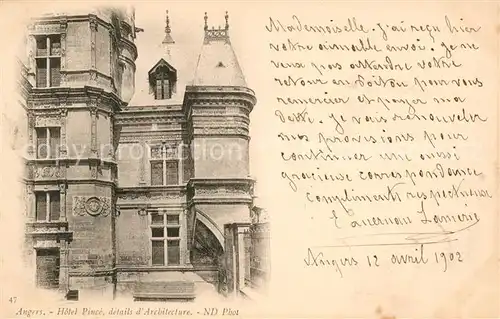 Mademoiselle. J'ai reçu hier
votre aimable envoi. Je ne
veux pas attendre votre
retour en Poitou pour vous
remercier et payer ma
dette. Je vais renouveler
mes provisions pour
continuer une aussi
gracieuse correspondance
Compliments respectueux
Angers 12 avril 1902
47
Angers. - Hôtel Pincé, détails d'Architecture. - ND Phot